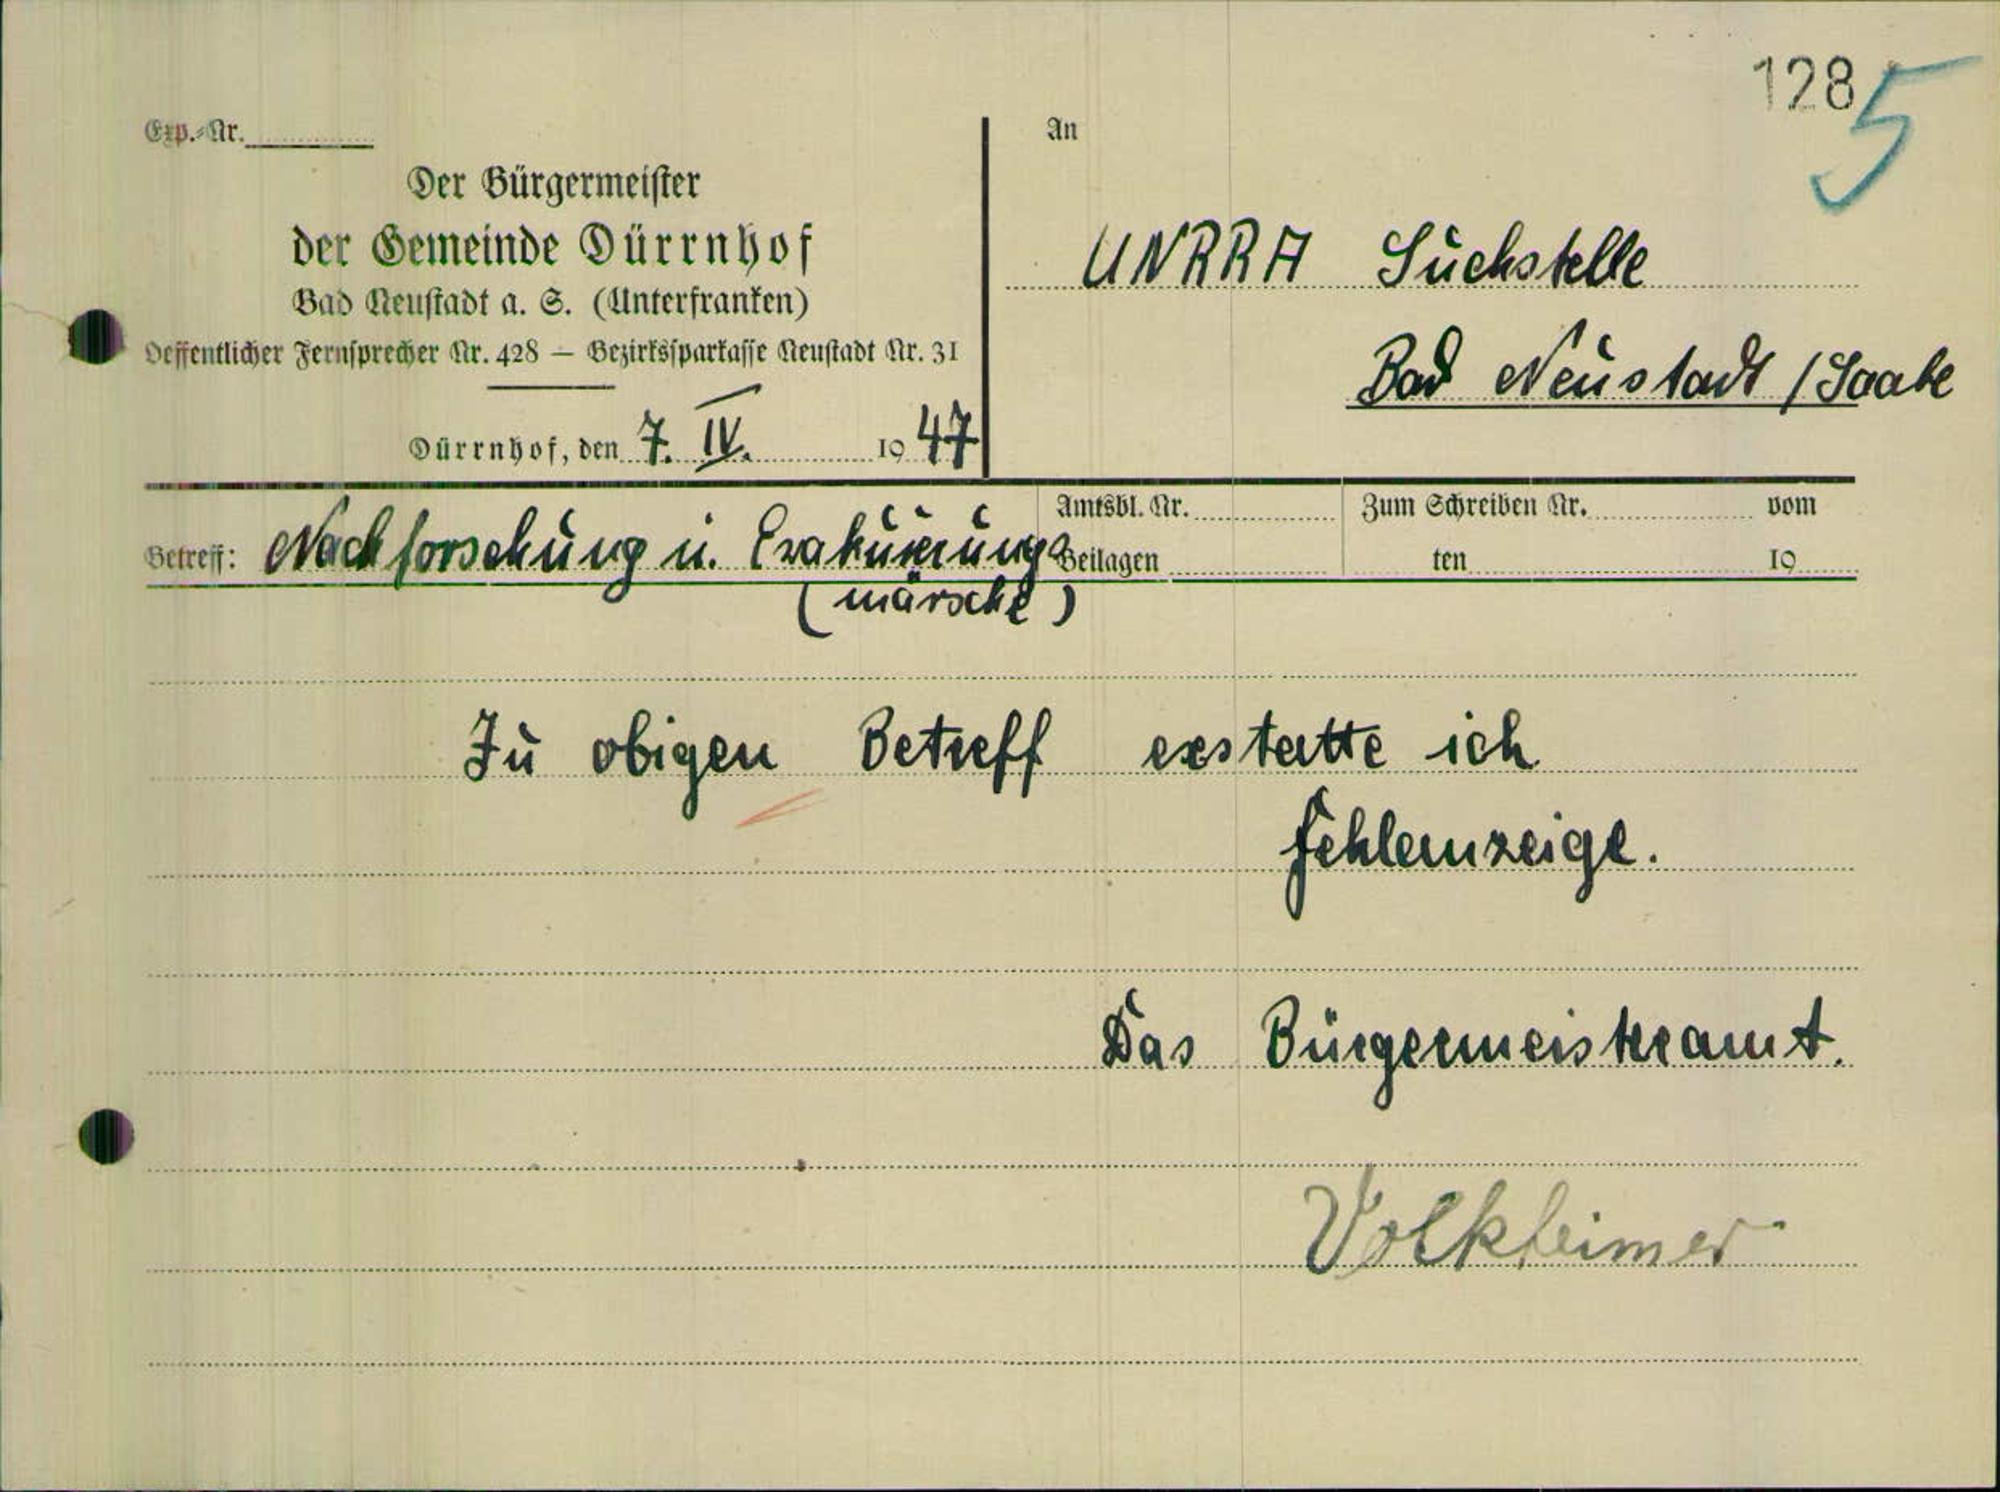 128
5
Exp.-Nr.
Der Bürgermeister
der Gemeinde Dürrnhof
Bad Neustadt a. S. (Unterfranken)
Oeffentlicher Fernsprecher Nr. 428 — Bezirkssparkasse Neustadt Nr. 31
Dürrnhof, den 7. IV. 1947
An
UNRRA Suchstelle
Bad Neustadt / Saale
Betreff: Nachforschung u. Evakuierungs
(märsche)
Amtsbl. Nr.
Beilagen
Zum Schreiben Nr. vom
ten 19
Zu obigen Betreff erstatte ich
Fehlanzeige.
Das Bürgermeisteramt.
Volkheimer